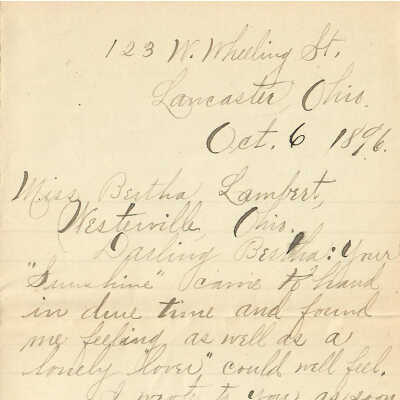 123 W. Wheeling St.
Lancaster, Ohio.
Oct. 6 1896.
Miss Bertha Lambert,
Westerville, Ohio.
Darling Bertha: Your
"Sunshine" came to hand
in due time and found
me feeling as well as a
lonely "lover," could well feel.
I wrote to your as soon